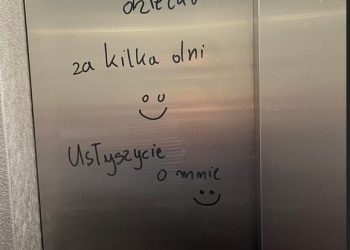 za kilka dni
Usłyszycie
o mnie